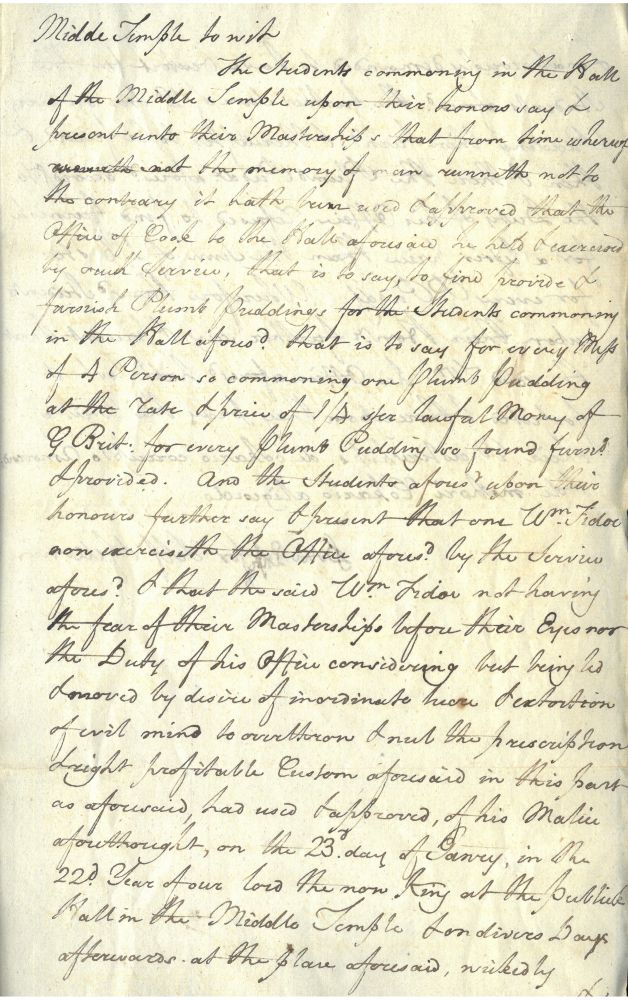 Midde Temple to wit
The Students commoning in the Hall
of the Middle Temple upon their honors say &
present unto their Masterships that from time whereof
runneth not the memory of man runneth not to
the contrary it hath been used & approved that the
Office of Cook to the Hall aforesaid be held & exercised
by such Service, that is to say, to find provide &
furnish Plumb Puddings for the Students commoning
in the Hall afores.d that is to say for every Mess
of 4 Person so commoning one Plumb Pudding
at the rate & price of 1/4 per lawful Money of
G Brit. for every Plumb Pudding so found furn.d
& provided. And the Students afores.d upon their
honours further say & present that one W.m Tidoe
now exerciseth the Office afores.d by the Service
afores.d & that the said W.m Tidoe not having
the fear of their Masterships before their Eyes nor
the Duty of his Office considering but being led
& moved by desire of inordinate lucre & extortion
of evil mind to overthrow & null the prescription
& right profitable Custom aforesaid in this part
as aforesaid, had used & approved, of his Malice
aforethought, on the 23.d day of Janry, in the
22.d Year of our lord the now King at the publick
Hall in the Middle Temple & on divers Days
afterwards at the place aforesaid, wickedly
&